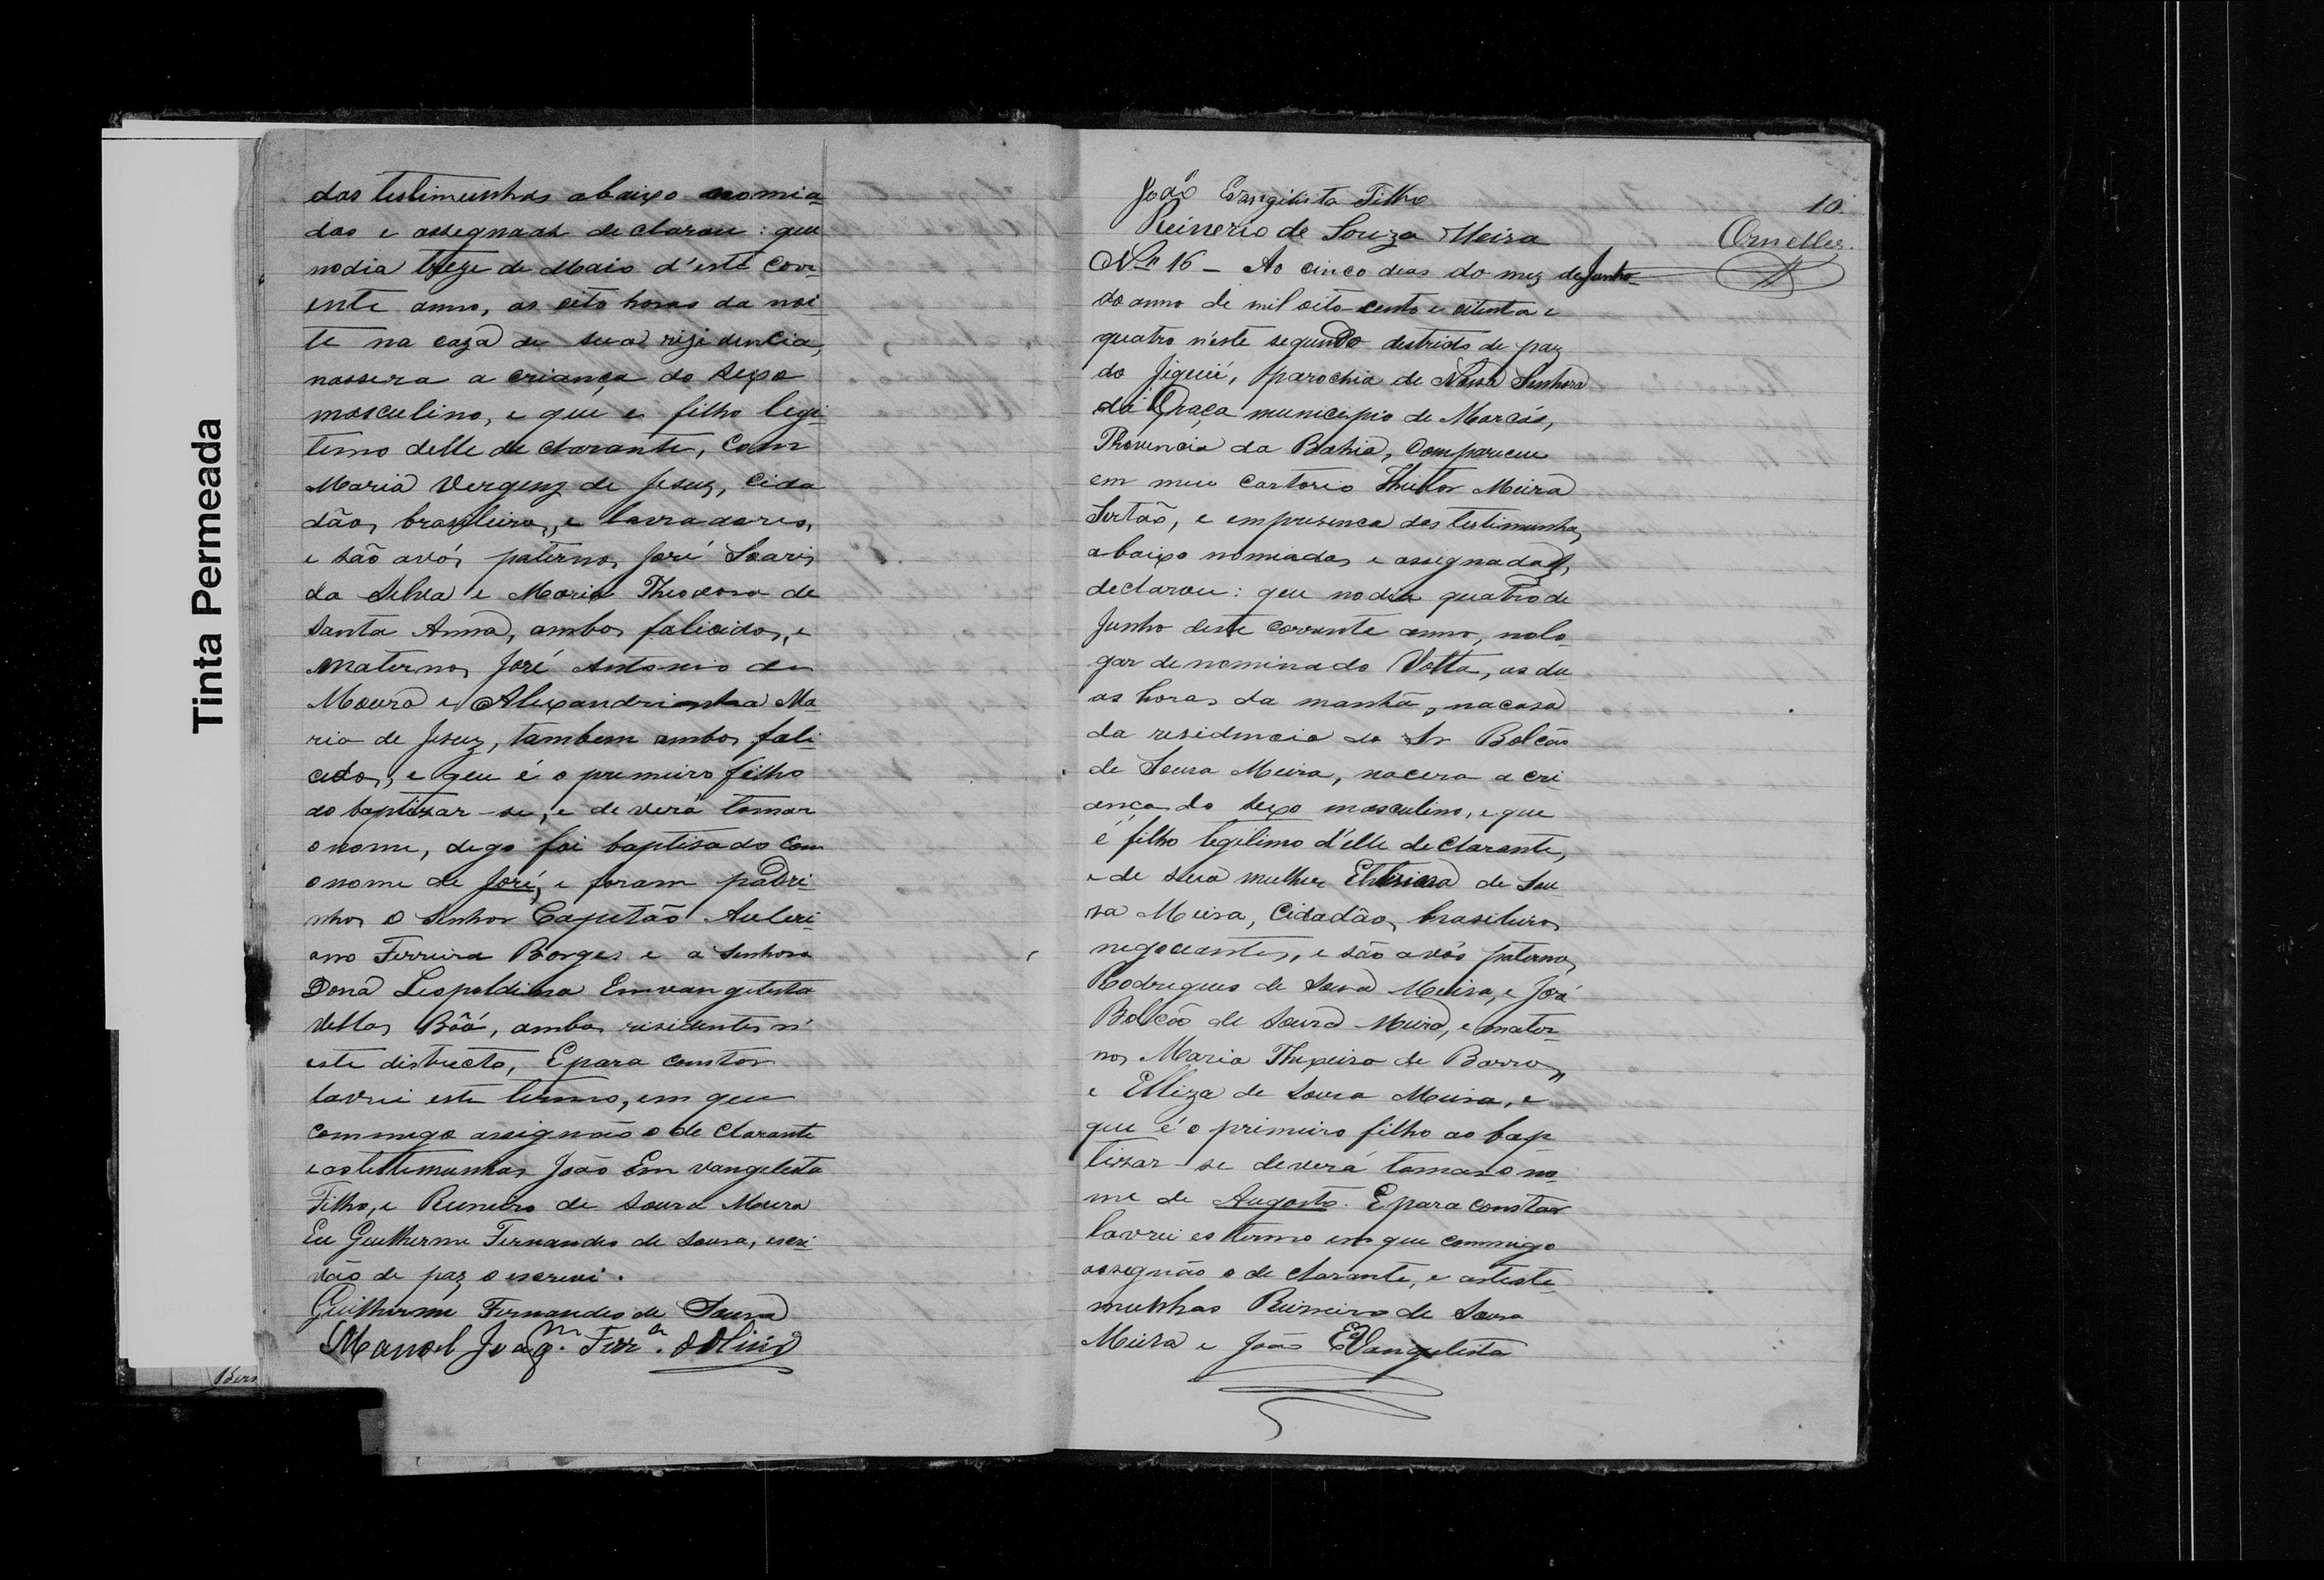 Tinta Permeada
das testimunhas abaixo nomia-
das e assegnads declarou: que
no dia treze de Maio d'este corr-
ente anno, as oito horas da noi-
te na caza de sua rizidencia,
nassera a criança do sexo
masculino, e que e filho legi-
timo delle declarante, com
Maria Vergenz de Jesuz, cida-
dãos brazileiros, e lavradores,
e são avós paternos José Soares
da Selva e Maria Theodora de
Santa Anna, ambos falicidos, e
maternos José Antonio de
Moura e Alexandrinha Ma-
ria de Jesuz, tambem ambos fali-
cidos, e que é o premeiro filho
ao baptizar-se, e deverá tomar
o nome, digo foi baptisado com
o nome de José, e foram padri-
nhos o Senhor Capetão Auleri-
ano Ferreira Borges e a Senhora
Dona Leopoldina Emvangelesta
Vellas Bôá, ambos risidentes n'
este districto, E para constar
lavrei este termo, em que
commego assignão o declarante
e as testimunhas João Emvangelesta
Filho, e Reineiro de Sousa Meira
Eu Guilherme Fernandes de Sousa, escri-
vão de paz o escrevi.
Guilherme Fernandes de Sousa
Manoel Joaqm. Ferra.
Bers
João Evangilista Filho
10.
Reinerio de Souza Meira
Ornelles.
No 16 - Ao cinco dias do mez de Junho
do anno de mil oito cento e oitenta e
quatro n'este segundo destricto de paz
do Jiquié, parochia de Nossa Senhora
da Graça municipio de Maracás,
Provencia da Bahia, Compareceu
em meu cartorio Meira
Sertão, e em presenca das testimunhas
abaixo nomiadas e assignadas,
declarou: que no dia quatro de
Junho deste corrente anno, no lo-
gar denominado Volta, as du-
as horas da manhã, na casa
da residencia do Sr Bolcão
de Sousa Meira, nacera a cri-
ança do sexo masculino, e que
é filho legitimo d'elle declarante,
e de sua mulher de Sou-
sa Meira, Cidadãos brasileiros
negociantes, e são avós paternos
Rodrigues de Sousa Meira, e José
Bolcão de Sousa Meira, e mater-
nos Maria Thexeira de Barros
e Elliza de Sousa Meira, e
que é o primeiro filho ao bap-
tizar-se deverá tomar o no-
me de Augosto. E para constar
lavrei es termo em que commigo
assegnão o declarante, e as teste-
munhas Reineiro de Sousa
Meira e João EVangelista